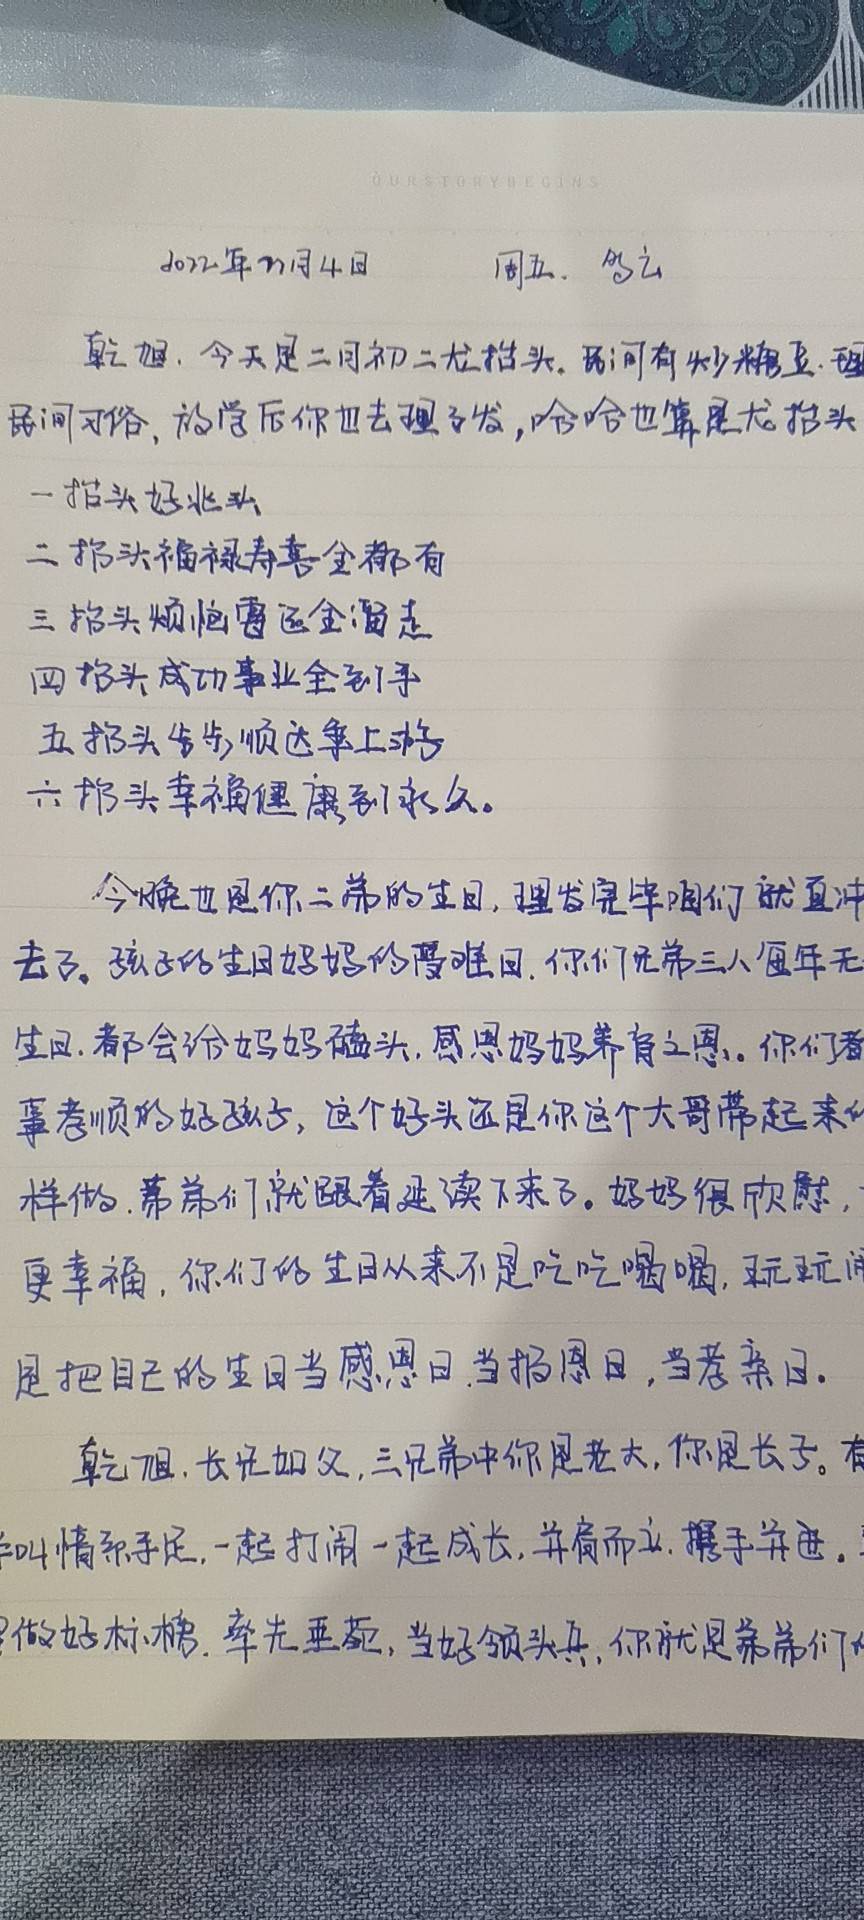 OURSTORYBEGINS
2022年3月4日 周五. 多云
乾旭.今天是二月初二龙抬头。民间有炒糖豆.理
民间习俗,放学后你也去理了发,哈哈也算是龙抬头
一抬头好兆头
二抬头福禄寿喜全都有
三抬头烦恼霉运全溜走
四抬头成功事业全到手
五抬头步步顺达乘上游
六抬头幸福健康到永久。
今晚也是你二弟的生日,理发完毕咱们就直冲
去了。孩子的生日妈妈的受难日.你们兄弟三人每年无
生日.都会给妈妈磕头.感恩妈妈养育之恩。你们看
事孝顺的好孩子,这个好头还是你这个大哥带起来的
样做.弟弟们就跟着延续下来了。妈妈很欣慰,
更幸福,你们的生日从来不是吃吃喝喝,玩玩闹
是把自己的生日当感恩日.当报恩日,当孝亲日。
乾旭.长兄如父,三兄弟中你是老大,你是长子。有
叫情系手足,一起打闹一起成长,并肩而立.携手并进。
做好标榜.率先垂范,当好领头兵,你就是弟弟们的